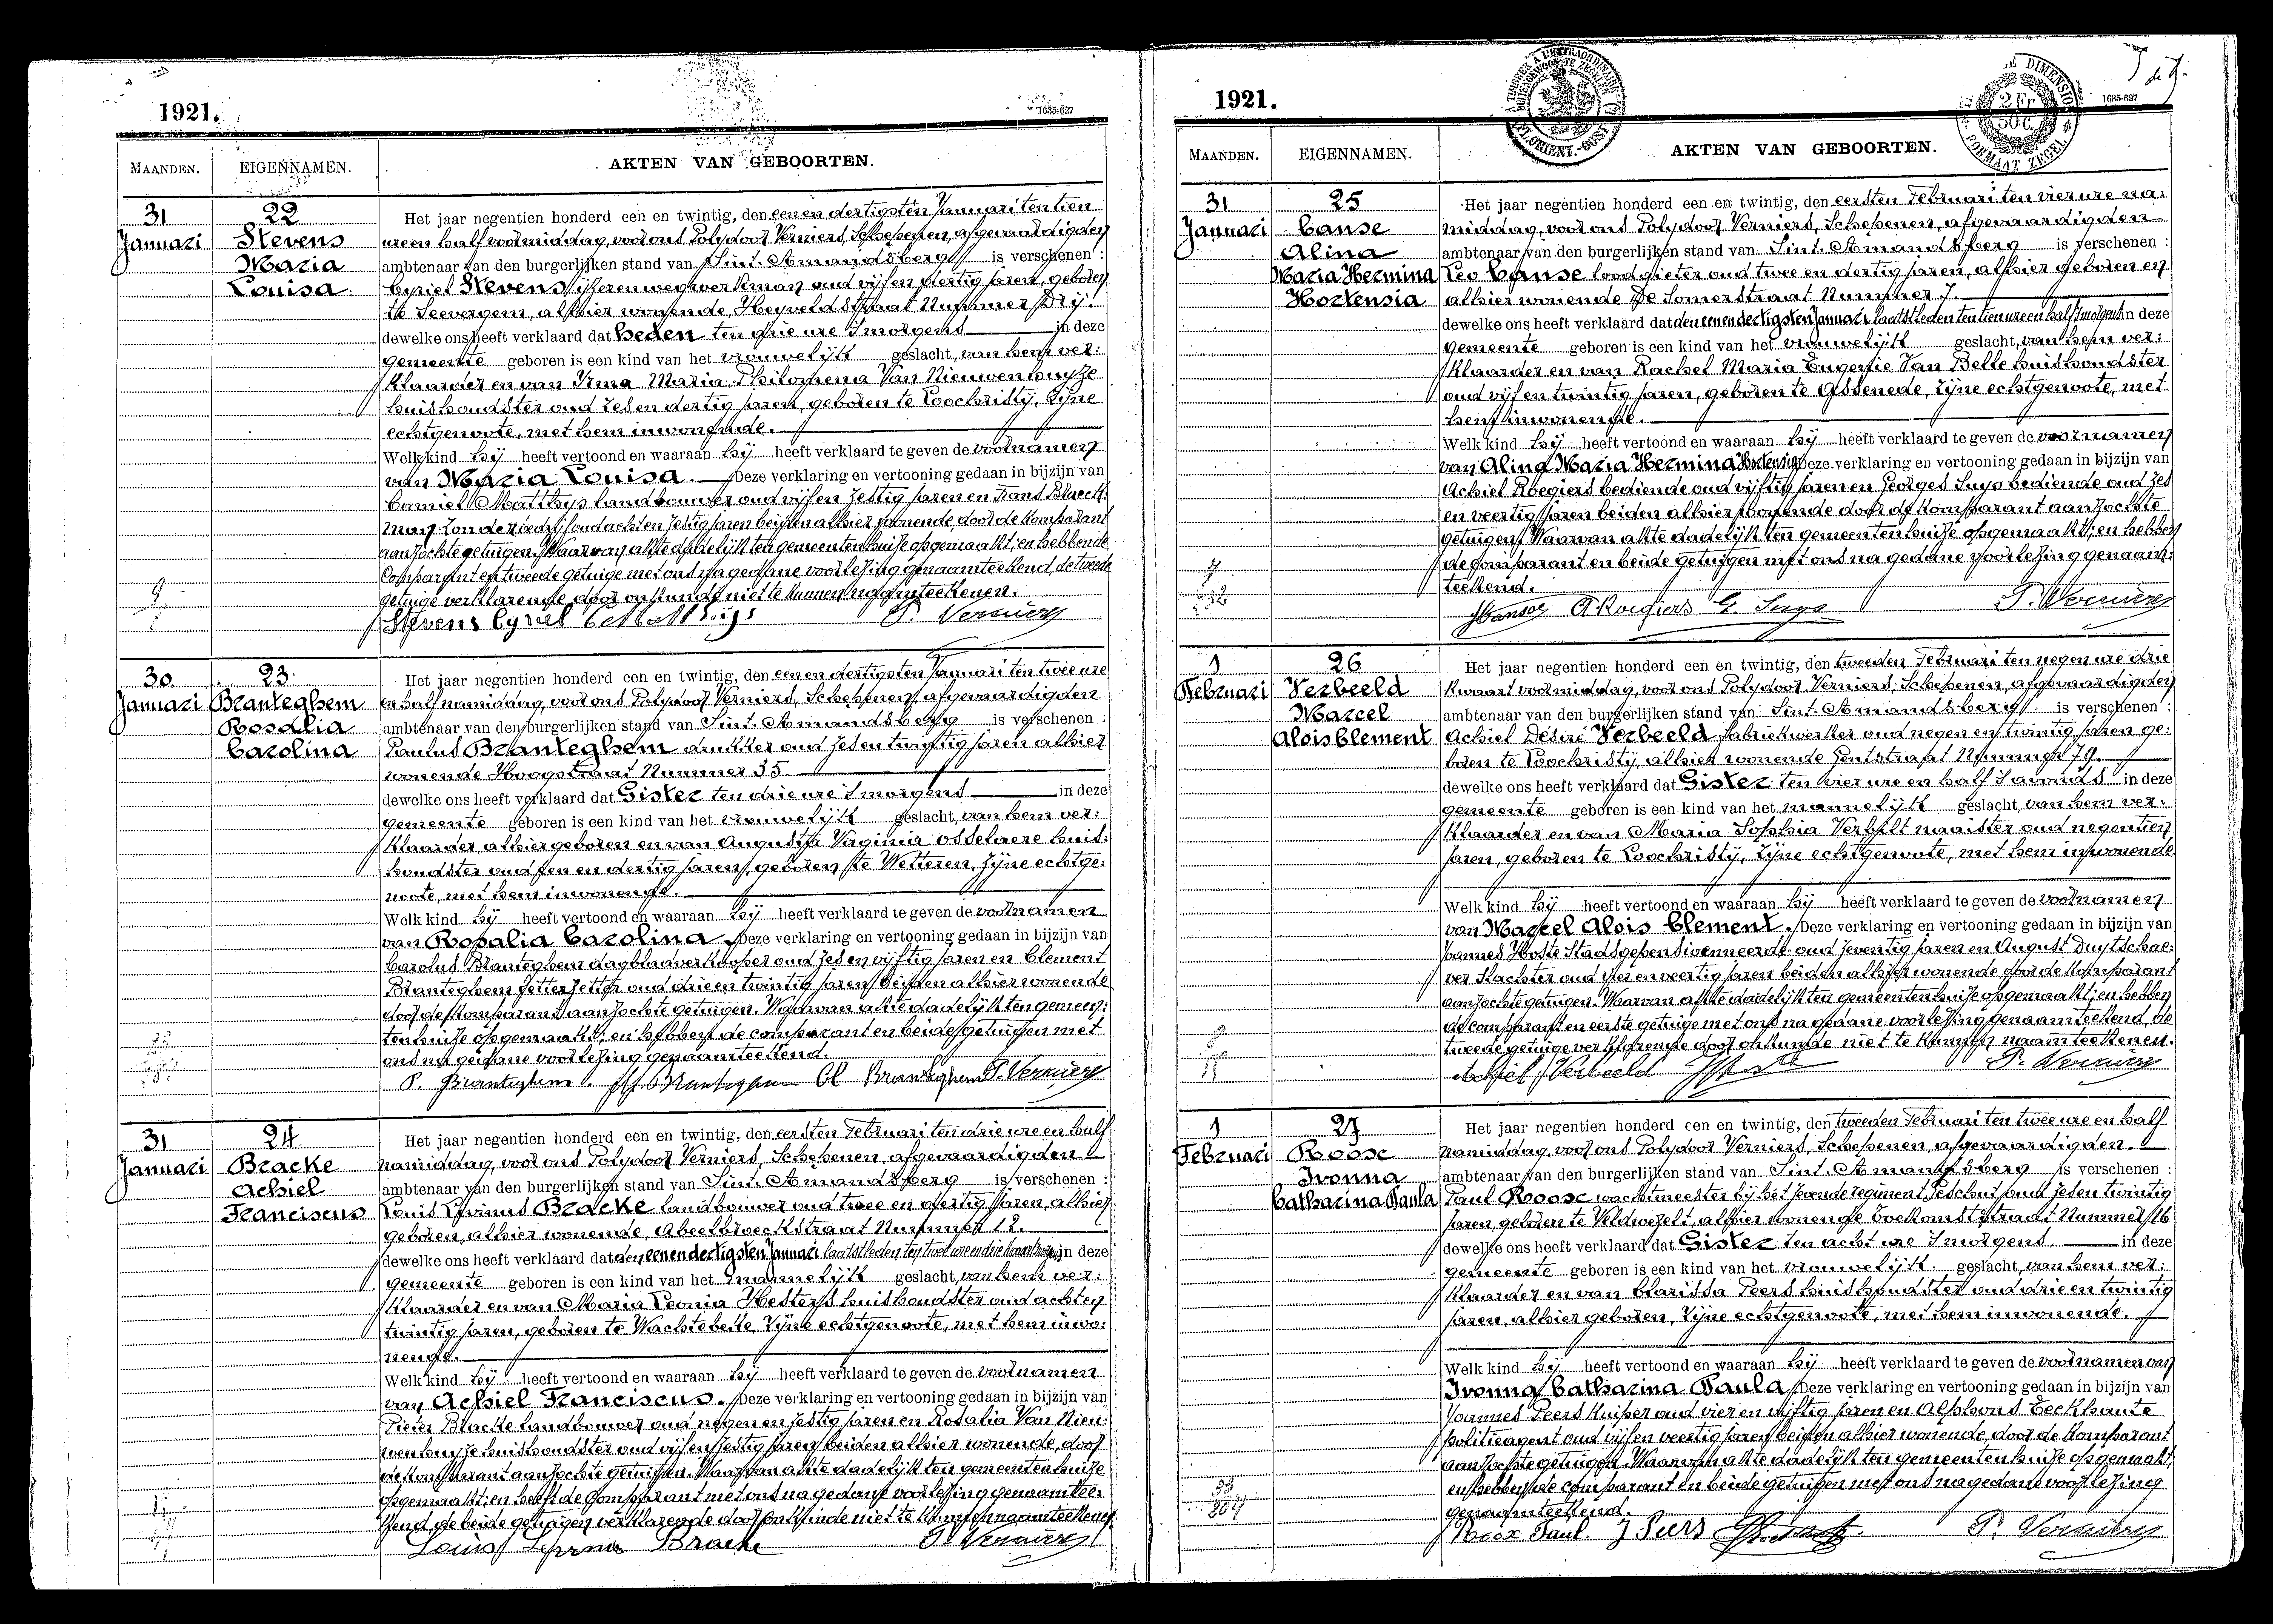 1921.
1635-627
MAANDEN.
EIGENNAMEN.
AKTEN VAN GEBOORTEN.
31
Januari
22
Stevens
Maria
Louisa
Het jaar negentien honderd een en twintig, den eenen dertigsten Januari ten tien
ure en half voormiddag, voor ons Polydoor Verniers, Schepenen, afgevaardigden
ambtenaar van den burgerlijken stand van Sint-Amandsberg is verschenen :
Cyriel Stevens ijzerenwegwerkman oud vijf en dertig jaren, geboren
te Seevergem, alhier wonende, Heyveldstraat Nummer Drij
dewelke ons heeft verklaard dat heden ten drie ure 's morgens in deze
gemeente geboren is een kind van het vrouwelijk geslacht, van hem ver:
klaarder en van Irma Maria Philomena Van Nieuwenhuyze
huishoudster oud zes en dertig jaren, geboren te Loochristij, zijne
echtgenoote, met hem inwonende.
Welk kind hij heeft vertoond en waaraan hij heeft verklaard te geven de voornamen
van Maria Louisa. Deze verklaring en vertooning gedaan in bijzijn van
Camiel Matthys landbouwer oud vijf en zestig jaren en Frans Blaeck:
man zonder bedrijf oud acht en zestig jaren beiden alhier wonende door de komparant
aanzochte getuigen. Waarvan akte dadelijk ten gemeentenhuize opgemaakt; en hebben de
Comparant en tweede getuige met ons na gedane voorlezing genaamteekend, de tweede
getuige verklarende door onkunde niet te kunnen naamteekenen.
Stevens Cyriel C Matthijs P. Verniers
30
Januari
23
Branteghem
Rosalia
Carolina
Het jaar negentien honderd een en twintig, den eenen dertigsten Januari ten twee ure
en half namiddag, voor ons Polydoor Verniers, Schepenen, afgevaardigden
ambtenaar van den burgerlijken stand van Sint-Amandsberg is verschenen :
Paulus Branteghem drukker oud zes en twintig jaren alhier
wonende Hoogstraat Nummer 35.
dewelke ons heeft verklaard dat Gister ten drie ure 's morgens in deze
gemeente geboren is een kind van het vrouwelijk geslacht, van hem ver:
klaarder, alhier geboren en van Augusta Virginia Osselaere huis:
houdster oud een en dertig jaren, geboren te Wetteren, zijne echtge:
noote, met hem inwonende.
Welk kind hij heeft vertoond en waaraan hij heeft verklaard te geven de voornamen
van Rosalia Carolina. Deze verklaring en vertooning gedaan in bijzijn van
Carolus Branteghem dagbladverkooper oud zes en vijftig jaren en Clement
Branteghem letterzetter oud drie en twintig jaren beiden alhier wonende
door de komparant aanzochte getuigen. Waarvan akte dadelijk ten gemeen:
tenhuize opgemaakt; en hebben de comparant en beide getuigen met
ons na gedane voorlezing genaamteekend.
P. Branteghem Branteghem Cl Branteghem P. Verniers
31
Januari
24
Bracke
Achiel
Franciscus
Het jaar negentien honderd een en twintig, den eersten Februari ten drie ure en half
namiddag, voor ons Polydoor Verniers, Schepenen, afgevaardigden
ambtenaar van den burgerlijken stand van Sint-Amandsberg is verschenen :
Louis Livinus Bracke landbouwer oud twee en dertig jaren, alhier
geboren, alhier wonende, Abeelbroeckstraat Nummer 12.
dewelke ons heeft verklaard dat den eenen dertigsten Januari laatstleden ten twee ure en drie kwart in deze
gemeente geboren is een kind van het mannelijk geslacht, van hem ver:
klaarder en van Maria Leonia Hesters huishoudster oud acht en
twintig jaren, geboren te Wachtebeke, zijne echtgenoote, met hem inwo:
nende.
Welk kind hij heeft vertoond en waaraan hij heeft verklaard te geven de voornamen
van Achiel Franciscus. Deze verklaring en vertooning gedaan in bijzijn van
Pieter Bracke landbouwer oud negen en zestig jaren en Rosalia Van Nieu:
wenhuyze huishoudster oud vijf en zestig jaren beiden alhier wonende, door
de komparant aanzochte getuigen. Waarvan akte dadelijk ten gemeentenhuize
opgemaakt; en heeft de Comparant met ons na gedane voorlezing genaamtee:
kend, de beide getuigen verklarende door onkunde niet te kunnen naamteekenen.
Louis Bracke P. Verniers
1921.
2 Fr
50 c.
FORMAAT ZEGEL
1635-627
MAANDEN.
EIGENNAMEN.
AKTEN VAN GEBOORTEN.
31
Januari
25
Canse
Alina
Maria Hermina
Hortensia
Het jaar negentien honderd een en twintig, den eersten Februari ten vier ure na:
middag, voor ons Polydoor Verniers, Schepenen, afgevaardigden
ambtenaar van den burgerlijken stand van Sint-Amandsberg is verschenen :
Leo Canse loodgieter oud twee en dertig jaren, alhier geboren en
alhier wonende De Somerstraat Nummer 7.
dewelke ons heeft verklaard dat den eenen dertigsten Januari laatstleden ten tien ure en half 's morgens in deze
gemeente geboren is een kind van het vrouwelijk geslacht, van hem ver:
klaarder en van Rachel Maria Eugenie Van Belle huishoudster
oud vijf en twintig jaren, geboren te Assenede, zijne echtgenoote, met
hem inwonende.
Welk kind hij heeft vertoond en waaraan hij heeft verklaard te geven de voornamen
van Alina Maria Hermina Hortensia Deze verklaring en vertooning gedaan in bijzijn van
Achiel Roegiers bediende oud vijftig jaren en Georges Suys bediende oud zes
en veertig jaren beiden alhier wonende door de komparant aanzochte
getuigen. Waarvan akte dadelijk ten gemeentenhuize opgemaakt; en hebben
de comparant en beide getuigen met ons na gedane voorlezing genaam:
teekend.
A. Roegiers G. Suys P. Verniers
1
Februari
26
Verbeeld
Marcel
Alois Clement
Het jaar negentien honderd een en twintig, den tweeden Februari ten negen ure drie
kwaart voormiddag, voor ons Polydoor Verniers, Schepenen, afgevaardigden
ambtenaar van den burgerlijken stand van Sint-Amandsberg is verschenen :
Achiel Désiré Verbeeld fabriekwerker oud negen en twintig jaren ge:
boren te Loochristij, alhier wonende Gentstraat Nummer 79.
dewelke ons heeft verklaard dat Gister ten vier ure en half 's avonds in deze
gemeente geboren is een kind van het mannelijk geslacht, van hem ver:
klaarder en van Maria Sophia naaister oud negentien
jaren, geboren te Loochristij, zijne echtgenoote, met hem inwonende.
Welk kind hij heeft vertoond en waaraan hij heeft verklaard te geven de voornamen
van Marcel Alois Clement. Deze verklaring en vertooning gedaan in bijzijn van
Joannes Hoste Stadsgepensioenneerde oud zeventig jaren en August Duytschae:
ver slachter oud vier en veertig jaren beiden alhier wonende door de komparant
aanzochte getuigen. Waarvan akte dadelijk ten gemeentenhuize opgemaakt; en hebben
de comparant en eerste getuige met ons na gedane voorlezing genaamteekend, de
tweede getuige verklarende door onkunde niet te kunnen naamteekenen.
Achiel Verbeeld P. Verniers
1
Februari
27
Roose
Ivonna
Catharina Paula
Het jaar negentien honderd een en twintig, den tweeden Februari ten twee ure en half
namiddag, voor ons Polydoor Verniers, Schepenen, afgevaardigden.
ambtenaar van den burgerlijken stand van Sint-Amandsberg is verschenen :
Paul Roose wachtmeester bij het zevende regiment Geschut oud zes en twintig
jaren, geboren te Veldwezelt, alhier wonende Toekomststraat Nummer 16
dewelke ons heeft verklaard dat Gister ten acht ure 's morgens. in deze
gemeente geboren is een kind van het vrouwelijk geslacht, van hem ver:
klaarder en van Clarissa Peers huishoudster oud drie en twintig
jaren, alhier geboren, zijne echtgenoote, met hem inwonende.
Welk kind hij heeft vertoond en waaraan hij heeft verklaard te geven de voornamen van
Ivonna Catharina Paula. Deze verklaring en vertooning gedaan in bijzijn van
Joannes Peers kuiper oud vier en vijftig jaren en Alphons Eeckhaute
politieagent oud vijf en veertig jaren beiden alhier wonende, door de komparant
aanzochte getuigen. Waarvan akte dadelijk ten gemeentenhuize opgemaakt;
en hebben de comparant en beide getuigen met ons na gedane voorlezing
genaamteekend.
Paul J Peers P. Verniers